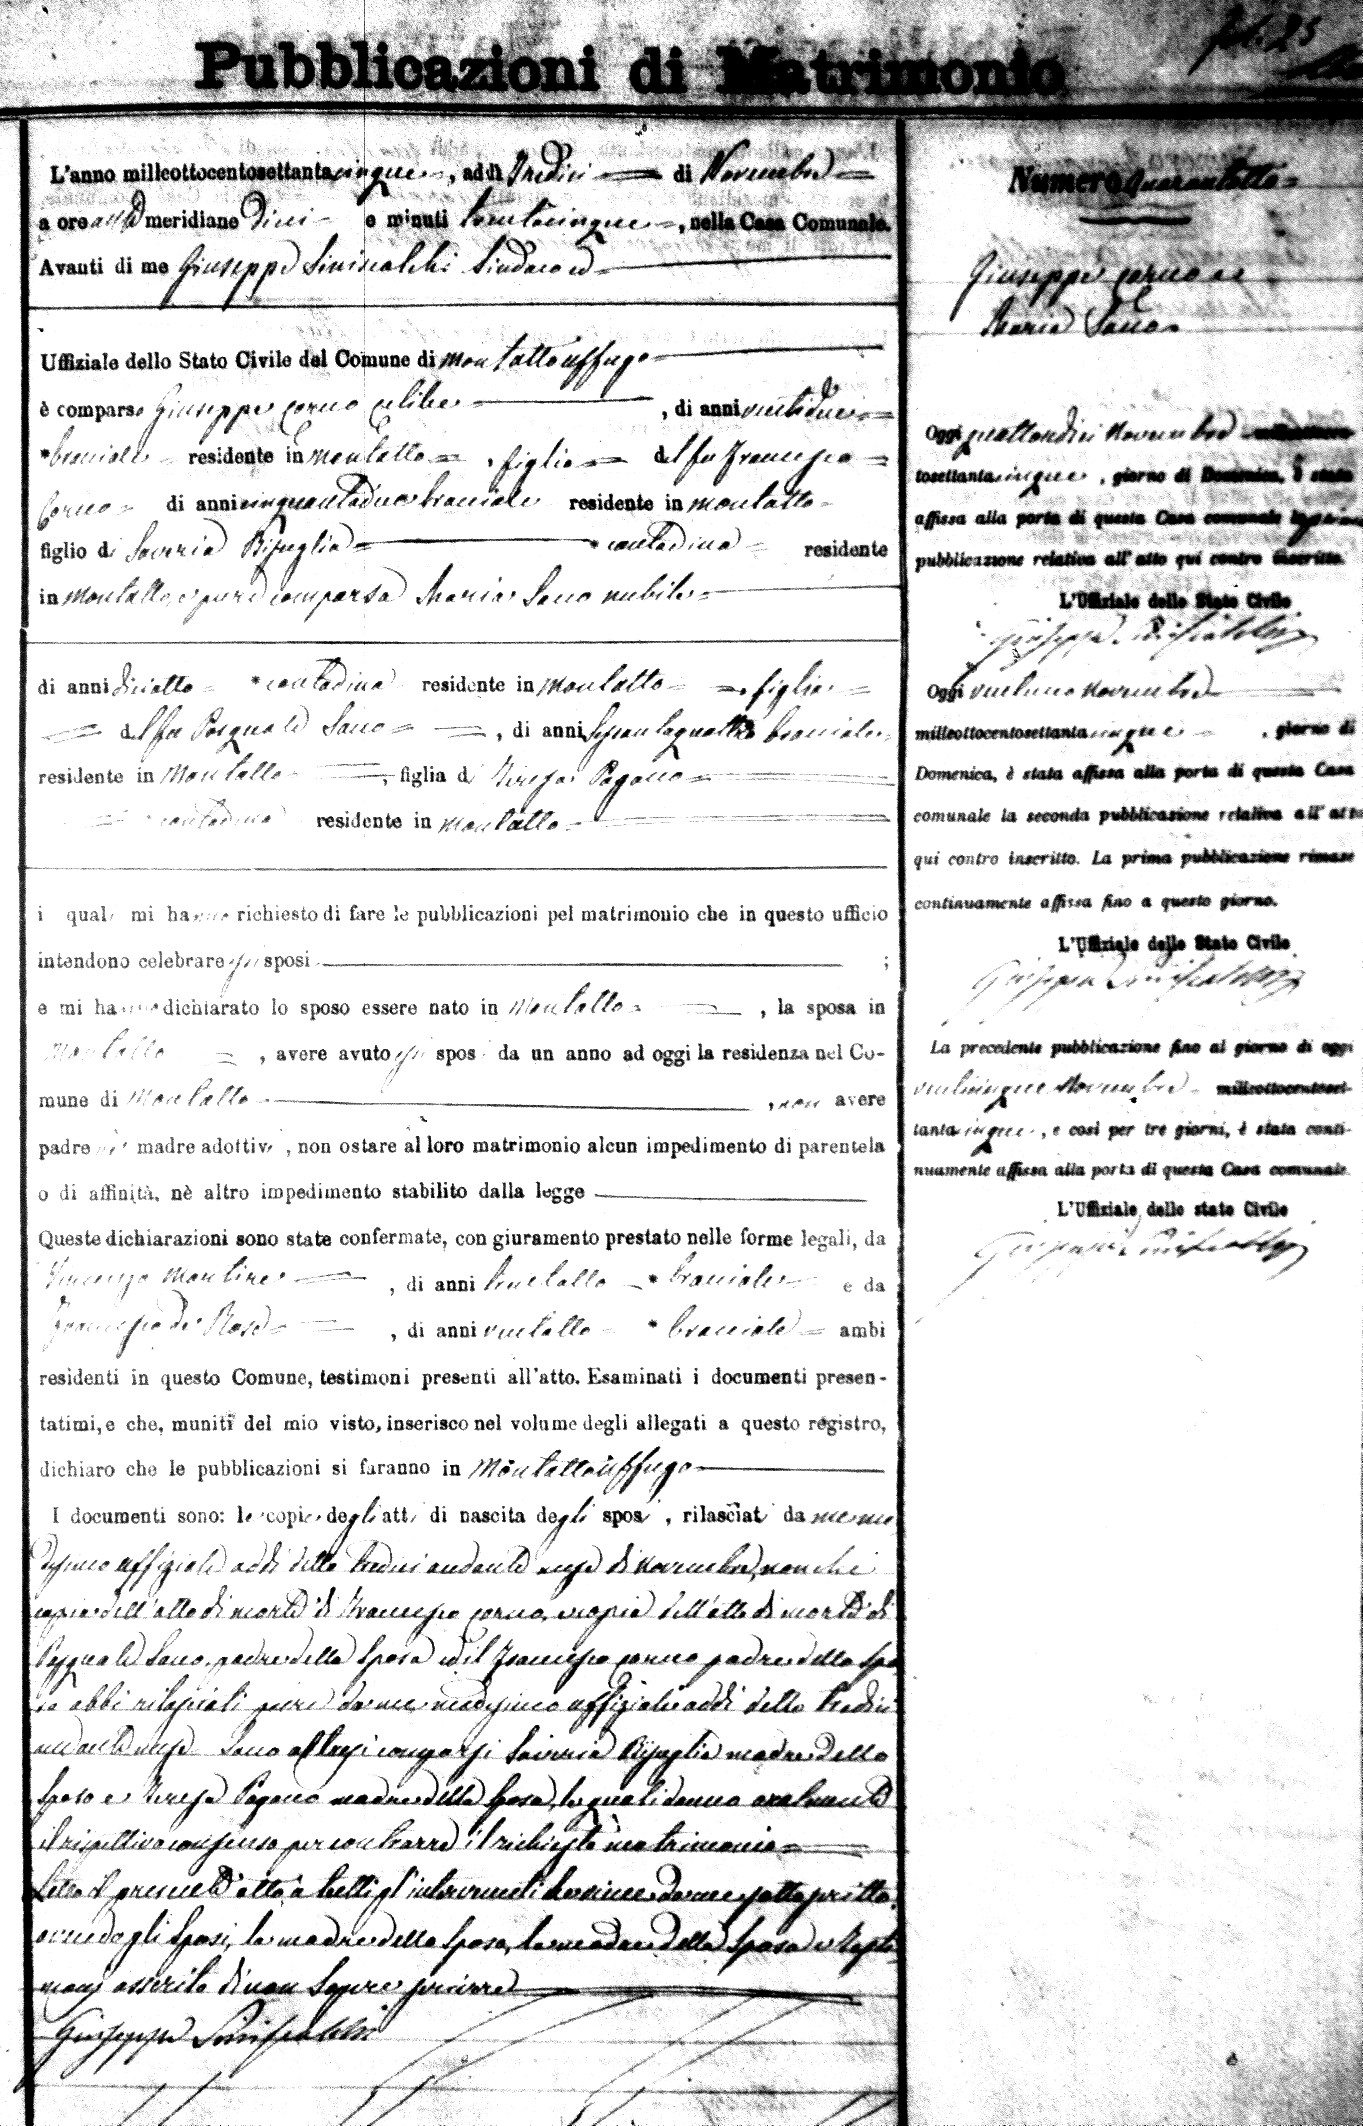 Pubblicazioni di Matrimonio
L'anno milleottocentosettantacinque, addì Tredici di Novembre
a ore anti meridiane Dieci e minuti trentacinque, nella Casa Comunale.
Avanti di me Giuseppe Siniscalchi Sindaco ed
Uffiziale dello Stato Civile del Comune di Montalto Uffugo
è comparso Giuseppe Corno celibe, di anni ventidue
bracciale residente in Montalto, figlio del fu Francesco
Corno di anni cinquantadue bracciale residente in Montalto
figlio di Saveria Bisuglia contadina residente
in Montalto, e pure comparsa Maria Sano nubile
di anni diciotto contadina residente in Montalto figlia
del fu Pasquale Sano, di anni sessantaquattro bracciale,
residente in Montalto, figlia di Teresa Pagano
contadina residente in Montalto
i quali mi hanno richiesto di fare le pubblicazioni pel matrimonio che in questo ufficio
intendono celebrare essi sposi ;
e mi hanno dichiarato lo sposo essere nato in Montalto, la sposa in
Montalto, avere avuto essi sposi da un anno ad oggi la residenza nel Co-
mune di Montalto, non avere
padre nè madre adottivi, non ostare al loro matrimonio alcun impedimento di parentela
o di affinità, nè altro impedimento stabilito dalla legge
Queste dichiarazioni sono state confermate, con giuramento prestato nelle forme legali, da
Vincenzo, di anni trentotto bracciale e da
Francesco de Rose, di anni ventotto bracciale ambi
residenti in questo Comune, testimoni presenti all'atto. Esaminati i documenti presen-
tatimi, e che, muniti del mio visto, inserisco nel volume degli allegati a questo registro,
dichiaro che le pubblicazioni si faranno in Montalto Uffugo
I documenti sono: le copie degli atti di nascita degli sposi, rilasciati da me me
desimo uffiziale addì detto tredici andante mese di Novembre, nonche
copia dell'atto di morte di Francesco Corno, e copia dell'atto di morte di
Pasquale Sano, padre della sposa ed il Francesco Corno padre dello spo
so abbi rilasciati pure da me medesimo uffiziale addì detto tredici
andante mese Sono altresì comparsi Saveria Bisuglia madre dello
sposo e Teresa Pagano madre della sposa, le quali danno oralmente
il rispettivo consenso per contrarre il richiesto matrimonio
Letto il presente atto a tutti gl'intervenuti da me sottoscritto,
avendo gli sposi, la madre dello sposo, la madre della sposa e testi
monj asserito di non sapere scrivere
Giuseppe Siniscalchi
Numero quarantotto
Giuseppe Corno e
Maria Sano
Oggi quattordici Novembre milleottocen-
tosettantacinque, giorno di Domenica, è stata
affissa alla porta di questa Casa comunale la prima
pubblicazione relativa all'atto qui contro inscritto.
L'Uffiziale dello Stato Civile
Giuseppe Siniscalchi
Oggi ventuno Novembre
milleottocentosettantacinque, giorno di
Domenica, è stata affissa alla porta di questa Casa
comunale la seconda pubblicazione relativa all'atto
qui contro inscritto. La prima pubblicazione rimase
continuamente affissa fino a questo giorno.
L'Uffiziale dello Stato Civile
Giuseppe Siniscalchi
La precedente pubblicazione fino al giorno di oggi
venticinque Novembre milleottocentoset-
tantacinque, e così per tre giorni, è stata conti-
nuamente affissa alla porta di questa Casa comunale
L'Uffiziale dello stato Civile
Giuseppe Siniscalchi